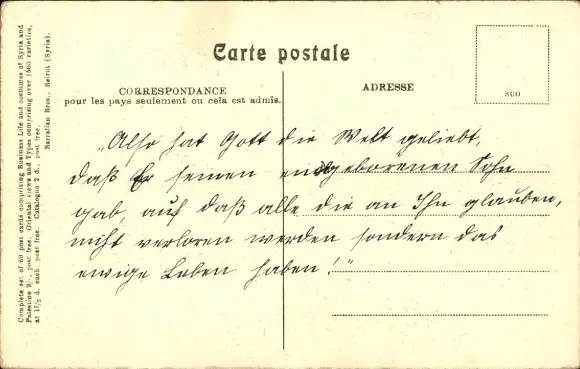 Carte postale
CORRESPONDANCE
pour les pays seulement ou cela est admis.
ADRESSE
SUO
„Also hat Gott die Welt geliebt,
daß Er seinen eingeborenen Sohn
gab, auf daß alle die an Ihn glauben,
nicht verloren werden sondern das
ewige Leben haben!"
Complete set of 60 post cards comprising Business Life and costumes of Syria and
Palestine 2/-. post free. Oriental views and Types comprising over 1500 varieties,
at 1 1/2 d. each. post free. Catalogue 2 d. post free.
Sarrafian Bros., Beirut (Syria).